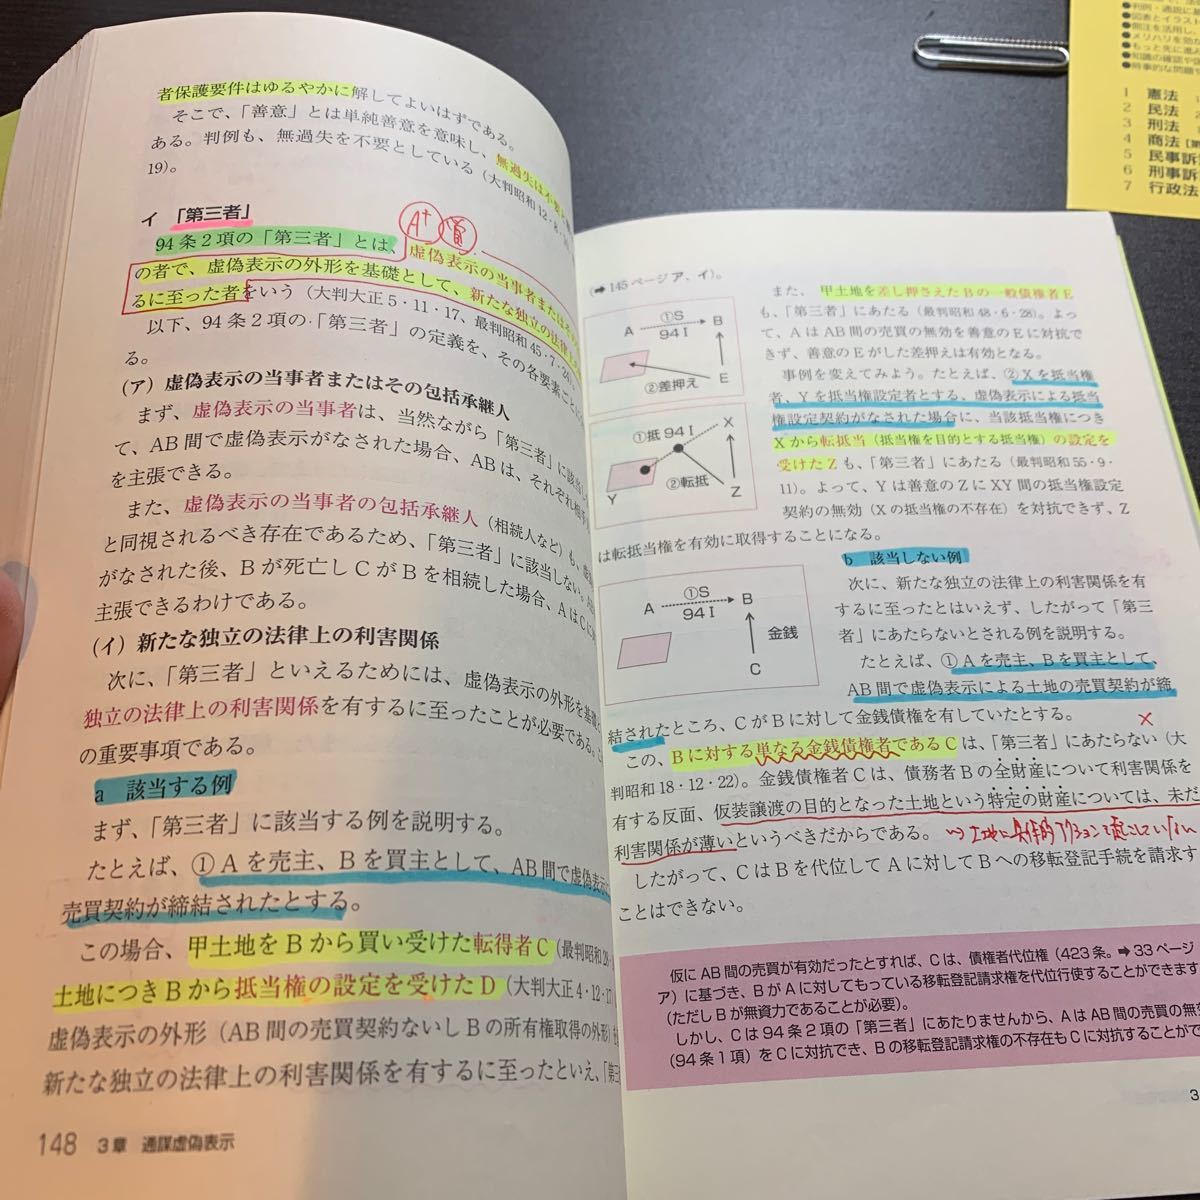 者保護要件はゆるやかに解してよいはずである。
そこで、「善意」とは単純善意を意味し、無過失は不要
ある。判例も、無過失を不要としている（大判昭和12・8・
19）。
イ 「第三者」
A+
94条2項の「第三者」とは、虚偽表示の当事者または
の者で、虚偽表示の外形を基礎として、新たな独立の法律上
るに至った者をいう（大判大正5・11・17、最判昭和45・7・24）。
以下、94条2項の「第三者」の定義を、その各要素ごとに
る。
（ア）虚偽表示の当事者またはその包括承継人
まず、虚偽表示の当事者は、当然ながら「第三者」に該当し
て、AB間で虚偽表示がなされた場合、ABは、それぞれ相手
を主張できる。
また、虚偽表示の当事者の包括承継人（相続人など）も、
と同視されるべき存在であるため、「第三者」に該当しない。
がなされた後、Bが死亡しCがBを相続した場合、AはCに
主張できるわけである。
（イ）新たな独立の法律上の利害関係
次に、「第三者」といえるためには、虚偽表示の外形を基礎
独立の法律上の利害関係を有するに至ったことが必要である。こ
の重要事項である。
a 該当する例
まず、「第三者」に該当する例を説明する。
たとえば、①Aを売主、Bを買主として、AB間で虚偽表示
売買契約が締結されたとする。
この場合、甲土地をBから買い受けた転得者C（最判昭和28・
土地につきBから抵当権の設定を受けたD（大判大正4・12・17
虚偽表示の外形（AB間の売買契約ないしBの所有権取得の外形）
新たな独立の法律上の利害関係を有するに至ったといえ、「第三
148 3章 通謀虚偽表示
（➡145ページア、イ）。
A ①S B
94Ⅰ
②差押え E
①抵 94Ⅰ X
②転抵
Y Z
また、甲土地を差し押さえたBの一般債権者E
も、「第三者」にあたる（最判昭和48・6・28）。よっ
て、AはAB間の売買の無効を善意のEに対抗で
きず、善意のEがした差押えは有効となる。
事例を変えてみよう。たとえば、②Xを抵当権
者、Yを抵当権設定者とする、虚偽表示による抵当
権設定契約がなされた場合に、当該抵当権につき
Xから転抵当（抵当権を目的とする抵当権）の設定を
受けたZも、「第三者」にあたる（最判昭和55・9・
11）。よって、Yは善意のZにXY間の抵当権設定
契約の無効（Xの抵当権の不存在）を対抗できず、Z
は転抵当権を有効に取得することになる。
A ①S B
94Ⅰ
金銭
C
b 該当しない例
次に、新たな独立の法律上の利害関係を有
するに至ったとはいえず、したがって「第三
者」にあたらないとされる例を説明する。
たとえば、①Aを売主、Bを買主として、
AB間で虚偽表示による土地の売買契約が締
結されたところ、CがBに対して金銭債権を有していたとする。
×
この、Bに対する単なる金銭債権者であるCは、「第三者」にあたらない（大
判昭和18・12・22）。金銭債権者Cは、債務者Bの全財産について利害関係を
有する反面、仮装譲渡の目的となった土地という特定の財産については、未だ
利害関係が薄いというべきだからである。
したがって、CはBを代位してAに対してBへの移転登記手続を請求す
ことはできない。
仮にAB間の売買が有効だったとすれば、Cは、債権者代位権（423条。➡33ページ
ア）に基づき、BがAに対してもっている移転登記請求権を代位行使することができます
（ただしBが無資力であることが必要）。
しかし、Cは94条2項の「第三者」にあたりませんから、AはAB間の売買の無効
（94条1項）をCに対抗でき、Bの移転登記請求権の不存在もCに対抗することがで
3
●判例・通説に
●図表とイラスト
●側注を活用し
●メリハリを効か
●もっと先に進
●知識の確認や
●時事的な問題
1 憲法
2 民法
3 刑法
4 商法
5 民事訴
6 刑事訴
7 行政法